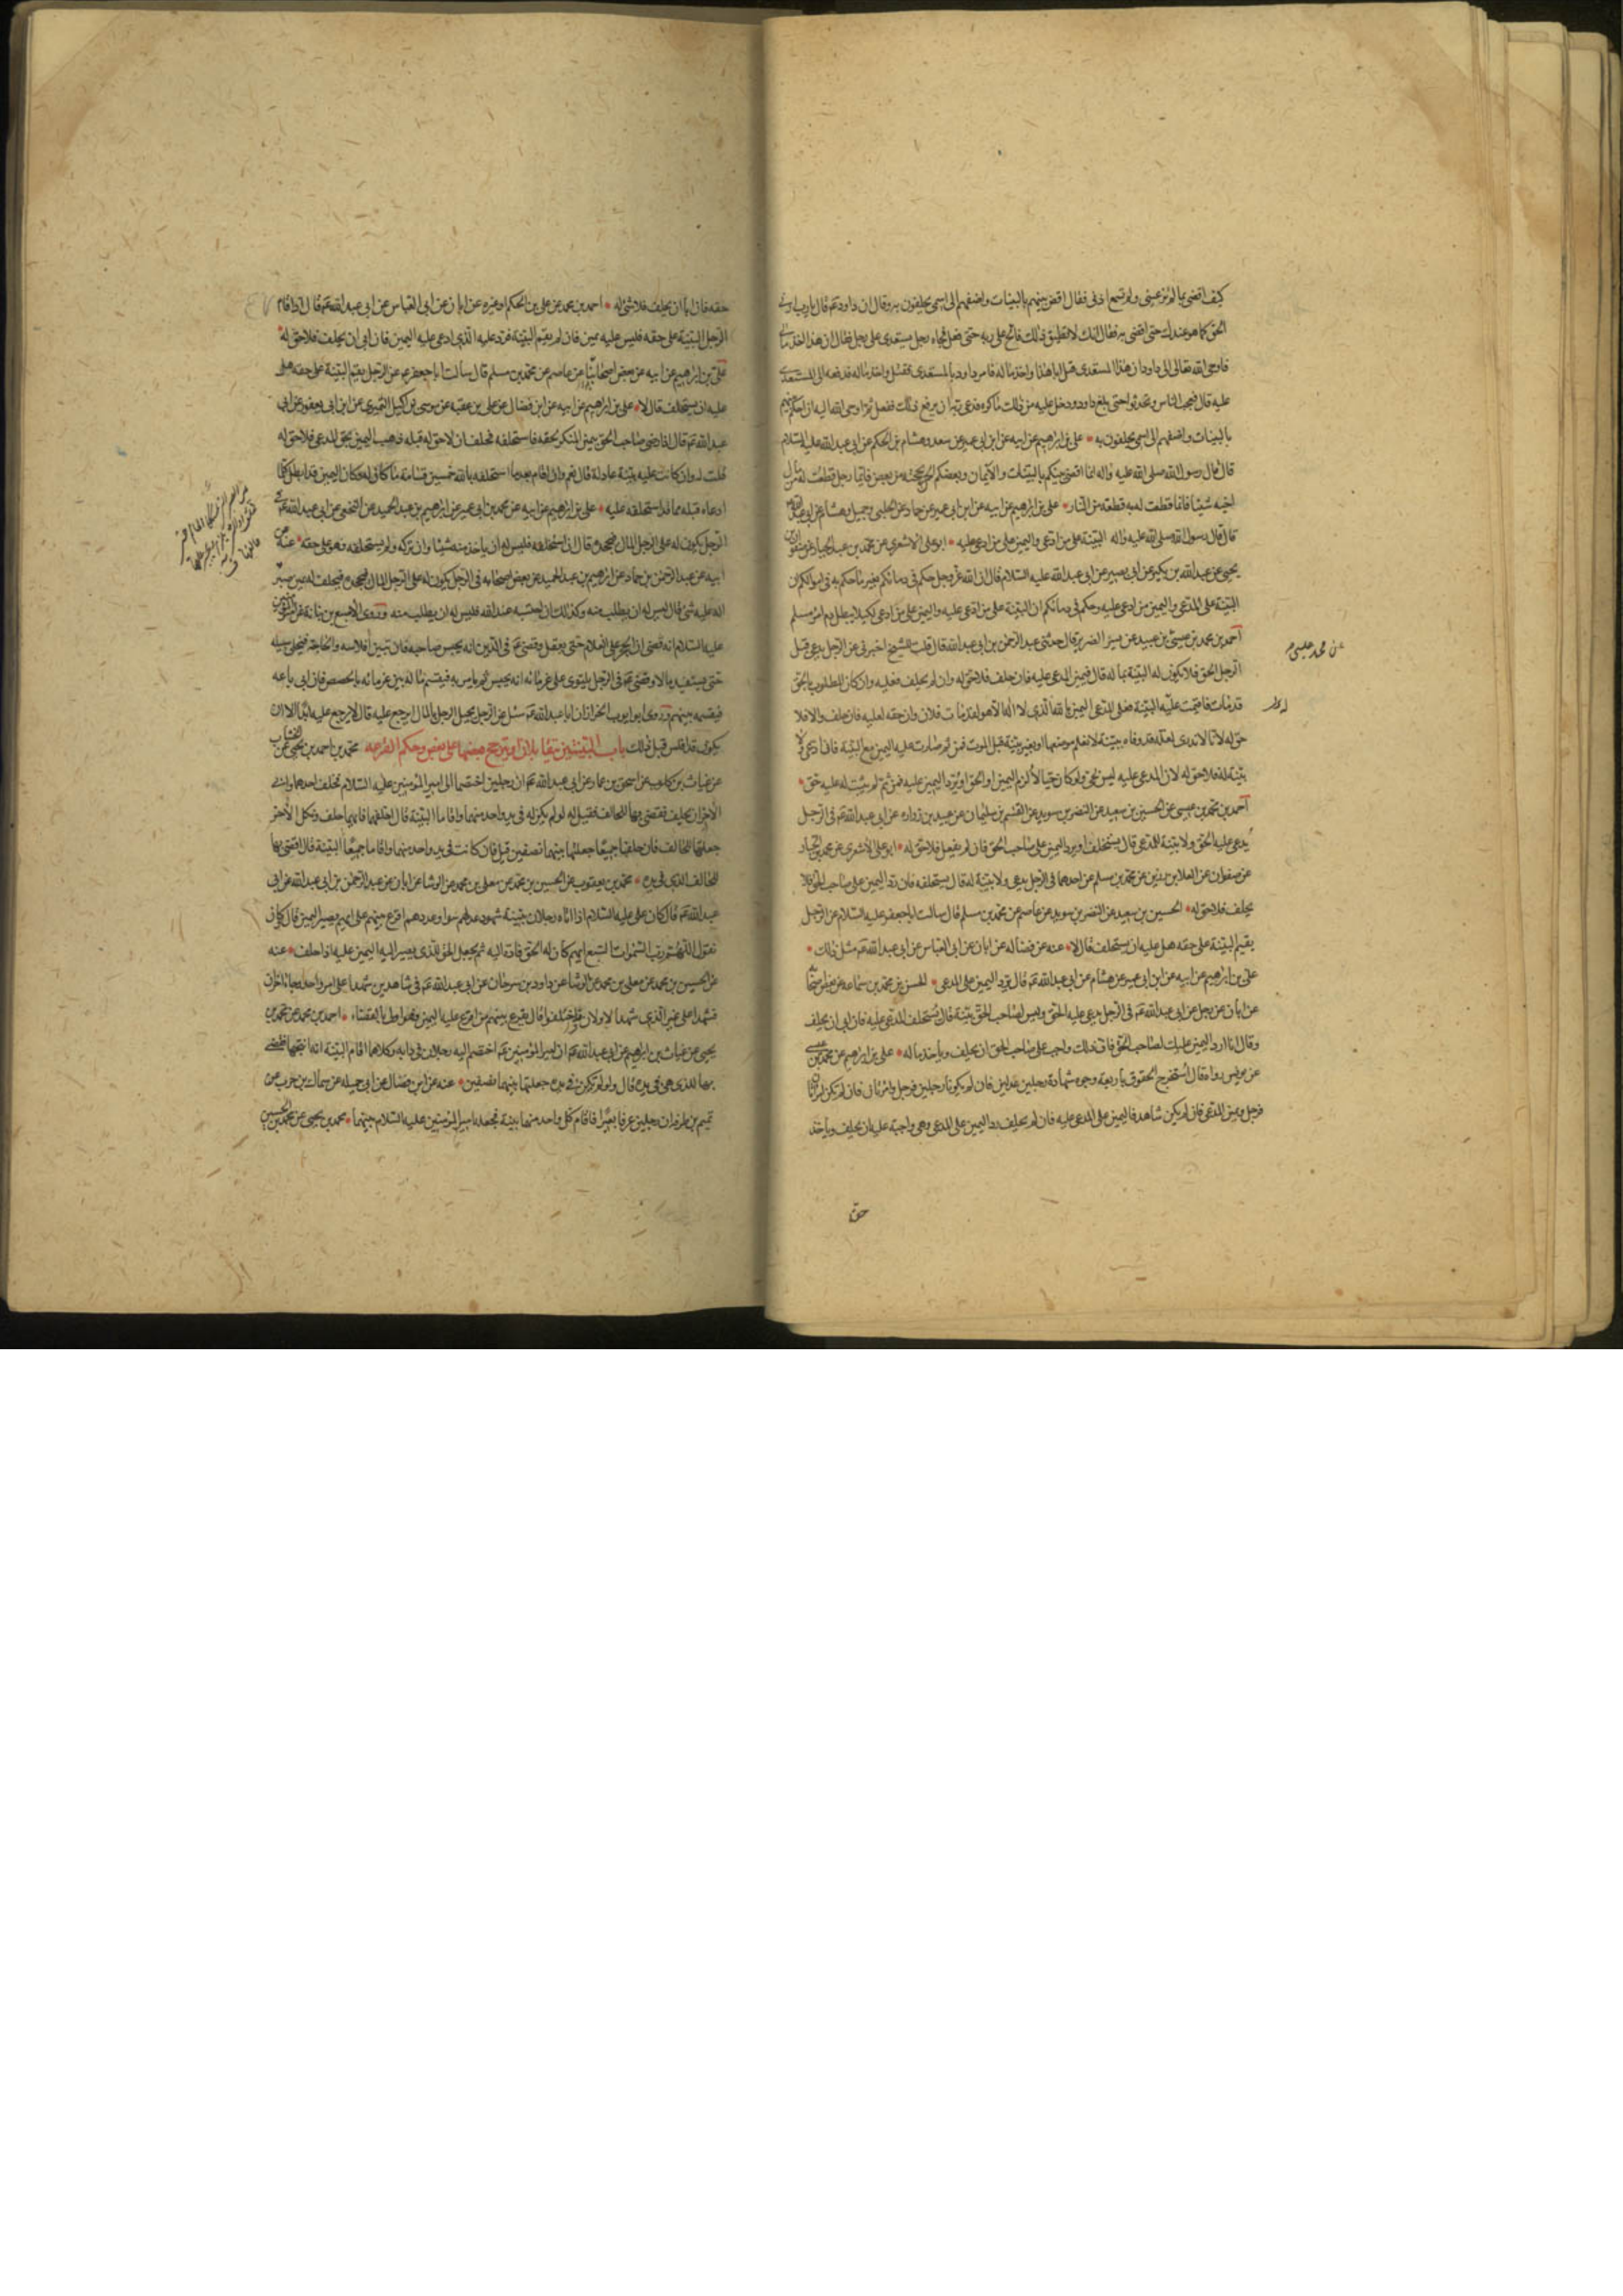 كيف اقضى بما لم تر عينى ولم تسمع اذنى فقال اقض بينهم بالبينات واضفهم الى اسمى يحلفون به وقال ان داود عم قال يا رب ارنى
الحق كما هو عندك حتى اقضى به فقال انك لا تطيق ذلك فالح على ربه حتى فعل فجاءه رجل يستعدى على رجل فقال ان هذا اخذ مالى
فاوحى الله تعالى الى داود ان هذا المستعدى قتل ابا هذا واخذ ماله فامر داود بالمستعدى فقتل واخذ ماله فدفعه الى المستعدى
عليه قال فعجب الناس وتحدثوا حتى بلغ داود ودخل عليه من ذلك ما كره فدعى ربه ان يرفع ذلك ففعل ثم اوحى الله اليه ان احكم بينهم
بالبينات واضفهم الى اسمى يحلفون به * على بن ابرهيم عن ابيه عن ابن ابى عمير عن سعد وهشام بن الحكم عن ابى عبد الله عليه السلام
قال قال رسول الله صلى الله عليه واله انما اقضى بينكم بالبينات والايمان وبعضكم الحن بحجته من بعض فايما رجل قطعت له من مال
اخيه شيئا فانما قطعت له به قطعة من النار * على بن ابرهيم عن ابيه عن ابن ابى عمير عن حماد عن الحلبى وجميل وهشام عن ابى عبد الله
قال قال رسول الله صلى الله عليه واله البينة على من ادعى واليمين على من ادعى عليه * ابو على الاشعرى عن محمد بن عبد الجبار عن صفوان بن
يحيى عن عبد الله بن بكير عن ابى بصير عن ابى عبد الله عليه السلام قال ان الله عز وجل حكم فى دمائكم بغير ما حكم به فى اموالكم ان
البينة على المدعى واليمين من ادعى عليه وحكم فى دمائكم ان البينة على من ادعى عليه واليمين على من ادعى لكيلا يبطل دم امرء مسلم
احمد بن محمد بن عيسى بن عبيد عن الضرير قال حدثنى عبد الرحمن بن ابى عبد الله قال قلت للشيخ اخبرنى عن الرجل يدعى قبل
الرجل الحق فلا يكون له البينة بما له قال فيمين المدعى عليه فان حلف فلا حق له وان لم يحلف فعليه وان كان المطلوب بالحق
قد مات فاقيمت عليه البينة فعلى المدعى اليمين بالله الذى لا اله الا هو لقد مات فلان وان حقه لعليه فان حلف والا فلا
حق له لانا لا ندرى لعله قد وفاه ببينة لا نعلم موضعها او بغير بينة قبل الموت فمن ثم صارت عليه اليمين مع البينة فان ادعى ولا
بينة له فلا حق له لان المدعى عليه ليس بحى ولو كان حيا لالزم اليمين او الحق او يرد اليمين عليه فمن ثم لم يثبت له عليه حق *
احمد بن محمد بن عيسى عن الحسين بن سعيد عن النضر بن سويد عن القسم بن سليمان عن عبيد بن زراره عن ابى عبد الله عم فى الرجل
يدعى عليه الحق ولا بينة للمدعى قال يستحلف او يرد اليمين على صاحب الحق فان لم يفعل فلا حق له * ابو على الاشعرى عن محمد بن عبد الجبار
عن صفوان عن العلا بن رزين عن محمد بن مسلم عن احدهما فى الرجل يدعى ولا بينة له قال يستحلفه فان رد اليمين على صاحب الحق فلم
يحلف فلا حق له * الحسين بن سعيد عن النضر بن سويد عن عاصم عن محمد بن مسلم قال سالت ابا جعفر عليه السلام عن الرجل
يقيم البينة على حقه هل عليه ان يستحلف قال لا * عنه عن فضاله عن ابان عن ابى العباس عن ابى عبد الله عم مثل ذلك *
على بن ابرهيم عن ابيه عن ابن ابى عمير عن هشام عن ابى عبد الله عم قال يرد اليمين على المدعى * الحسن بن محمد بن سماعة عن بعض اصحابه
عن ابان عن رجل عن ابى عبد الله عم فى الرجل يدعى عليه الحق وليس لصاحب الحق بينة قال يستحلف المدعى عليه فان ابى ان يحلف
وقال انا ارد اليمين عليك لصاحب الحق فان ذلك واجب على صاحب الحق ان يحلف وياخذ ماله * على بن ابرهيم عن محمد بن عيسى
عن يونس رواه قال استخرج الحقوق باربعة وجوه شهادة رجلين عدلين فان لم يكونا رجلين فرجل وامرئان فان لم تكن امرئان
فرجل ويمين المدعى فان لم يكن شاهد فاليمين على المدعى عليه فان لم يحلف رد اليمين على المدعى وهى واجبة عليه ان يحلف وياخذ
حق
عن محمد عيسى
حقه فان ابا ان يحلف فلا شئ له * احمد بن محمد عن على بن الحكم او غيره عن ابان عن ابى العباس عن ابى عبد الله عم قال اذا اقام
الرجل البينة على حقه فليس عليه يمين فان لم يقم البينة فرد عليه الذى ادعى عليه اليمين فان ابى ان يحلف فلا حق له *
على بن ابرهيم عن ابيه عن بعض اصحابنا عن عاصم عن محمد بن مسلم قال سالت ابا جعفر عم عن الرجل يقيم البينة على حقه هل
عليه ان يستحلف قال لا * على بن ابرهيم عن ابيه عن ابن فضال عن على بن عقبه عن موسى بن اكيل النميرى عن ابن ابى يعفور عن ابى
عبد الله عم قال اذا رضى صاحب الحق بيمين المنكر بحقه فاستحلفه فحلف ان لا حق له قبله ذهبت اليمين بحق المدعى فلا حق له
قلت له وان كانت عليه بينة عادلة قال نعم وان اقام بعد ما استحلفه بالله خمسين قسامة ما كان له وكان اليمين قد ابطل كلما
ادعاه قبله مما قد استحلفه عليه * على بن ابرهيم عن ابيه عن محمد بن ابى عمير عن ابرهيم بن عبد الحميد عن النخعى عن ابى عبد الله عم فى
الرجل يكون له على الرجل المال فيجحده قال ان استحلفه فليس له ان ياخذ منه شيئا وان تركه ولم يستحلفه فهو على حقه * عنه عن
ابيه عن عبد الرحمن بن حماد عن ابرهيم بن عبد الحميد عن بعض اصحابه فى الرجل يكون له على الرجل المال فيجحده فيحلف له يمين صبر
اله عليه شئ قال ليس له ان يطلب منه وكذلك ان احتسبه عند الله فليس له ان يطلب منه وروى الاصبغ بن نباتة عن امير المؤمنين
عليه السلام انه قضى ان الحجر على الغلام حتى يعقل وقضى عم فى الدين انه يحبس صاحبه فان تبين افلاسه والحاجة فيخلى سبيله
حتى يستفيد مالا وقضى عم فى الرجل يلتوى على غرمائه انه يحبس ثم يامر به فيقسم ماله بين غرمائه بالحصص فان ابى باعه
فيقسمه بينهم وروى ابو ايوب الخزاز ان ابا عبد الله عم سئل عن الرجل يحيل الرجل بالمال ايرجع عليه قال لا يرجع عليه ابدا الا ان
يكون قد افلس قبل ذلك باب البينتين يتقابلان او يترجح بعضها على بعض وحكم القرعه محمد بن احمد بن يحيى عن الخشاب
عن غياث بن كلوب عن اسحق بن عمار عن ابى عبد الله عم ان رجلين اختصما الى امير المؤمنين عليه السلام فحلف احدهما وابى
الآخر ان يحلف فقضى بها للحالف فقيل له لو لم يكن له فى يد واحد منهما واقاما البينة قال احلفهما فايهما حلف ونكل الآخر
جعلتها للحالف فان حلفا جميعا جعلتها بينهما نصفين قيل فان كانت فى يد واحد منهما واقاما جميعا البينة قال اقضى بها
للحالف الذى فى يده * محمد بن يعقوب عن الحسين بن محمد عن معلى بن محمد عن الوشا عن ابان عن عبد الرحمن بن ابى عبد الله عن ابى
عبد الله عم قال كان على عليه السلام اذا اتاه رجلان ببينة شهود عدلهم سوا وعددهم اقرع بينهم على ايهم يصير اليمين قال كان
يقول اللهم رب السموات السبع ايهم كان له الحق فاده اليه ثم يجعل الحق للذى يصير اليه اليمين عليه اذا حلف * عنه
عن الحسين بن محمد عن معلى بن محمد عن الوشا عن داود بن سرحان عن ابى عبد الله عم فى شاهدين شهدا على امر واحد وجاء اخران
فشهدا على غير الذى شهدا الاولان واختلفوا قال يقرع بينهم من اقرع عليه اليمين فهو اولى بالقضاء * احمد بن محمد عن محمد بن
يحيى عن غياث بن ابراهيم عن ابى عبد الله عم ان امير المؤمنين عم اختصم اليه رجلان فى دابه وكلاهما اقام البينة انه انتجها فقضى
بها للذى هى فى يده وقال ولو لم تكن فى يده جعلتها بينهما نصفين * عنه عن ابن فضال عن ابى جميله عن سماك بن حرب عن
تميم بن طرفه ان رجلين عرفا بعيرا فاقام كل واحد منهما بينة فجعله امير المؤمنين عليه السلام بينهما * محمد بن يحيى عن محمد بن الحسين